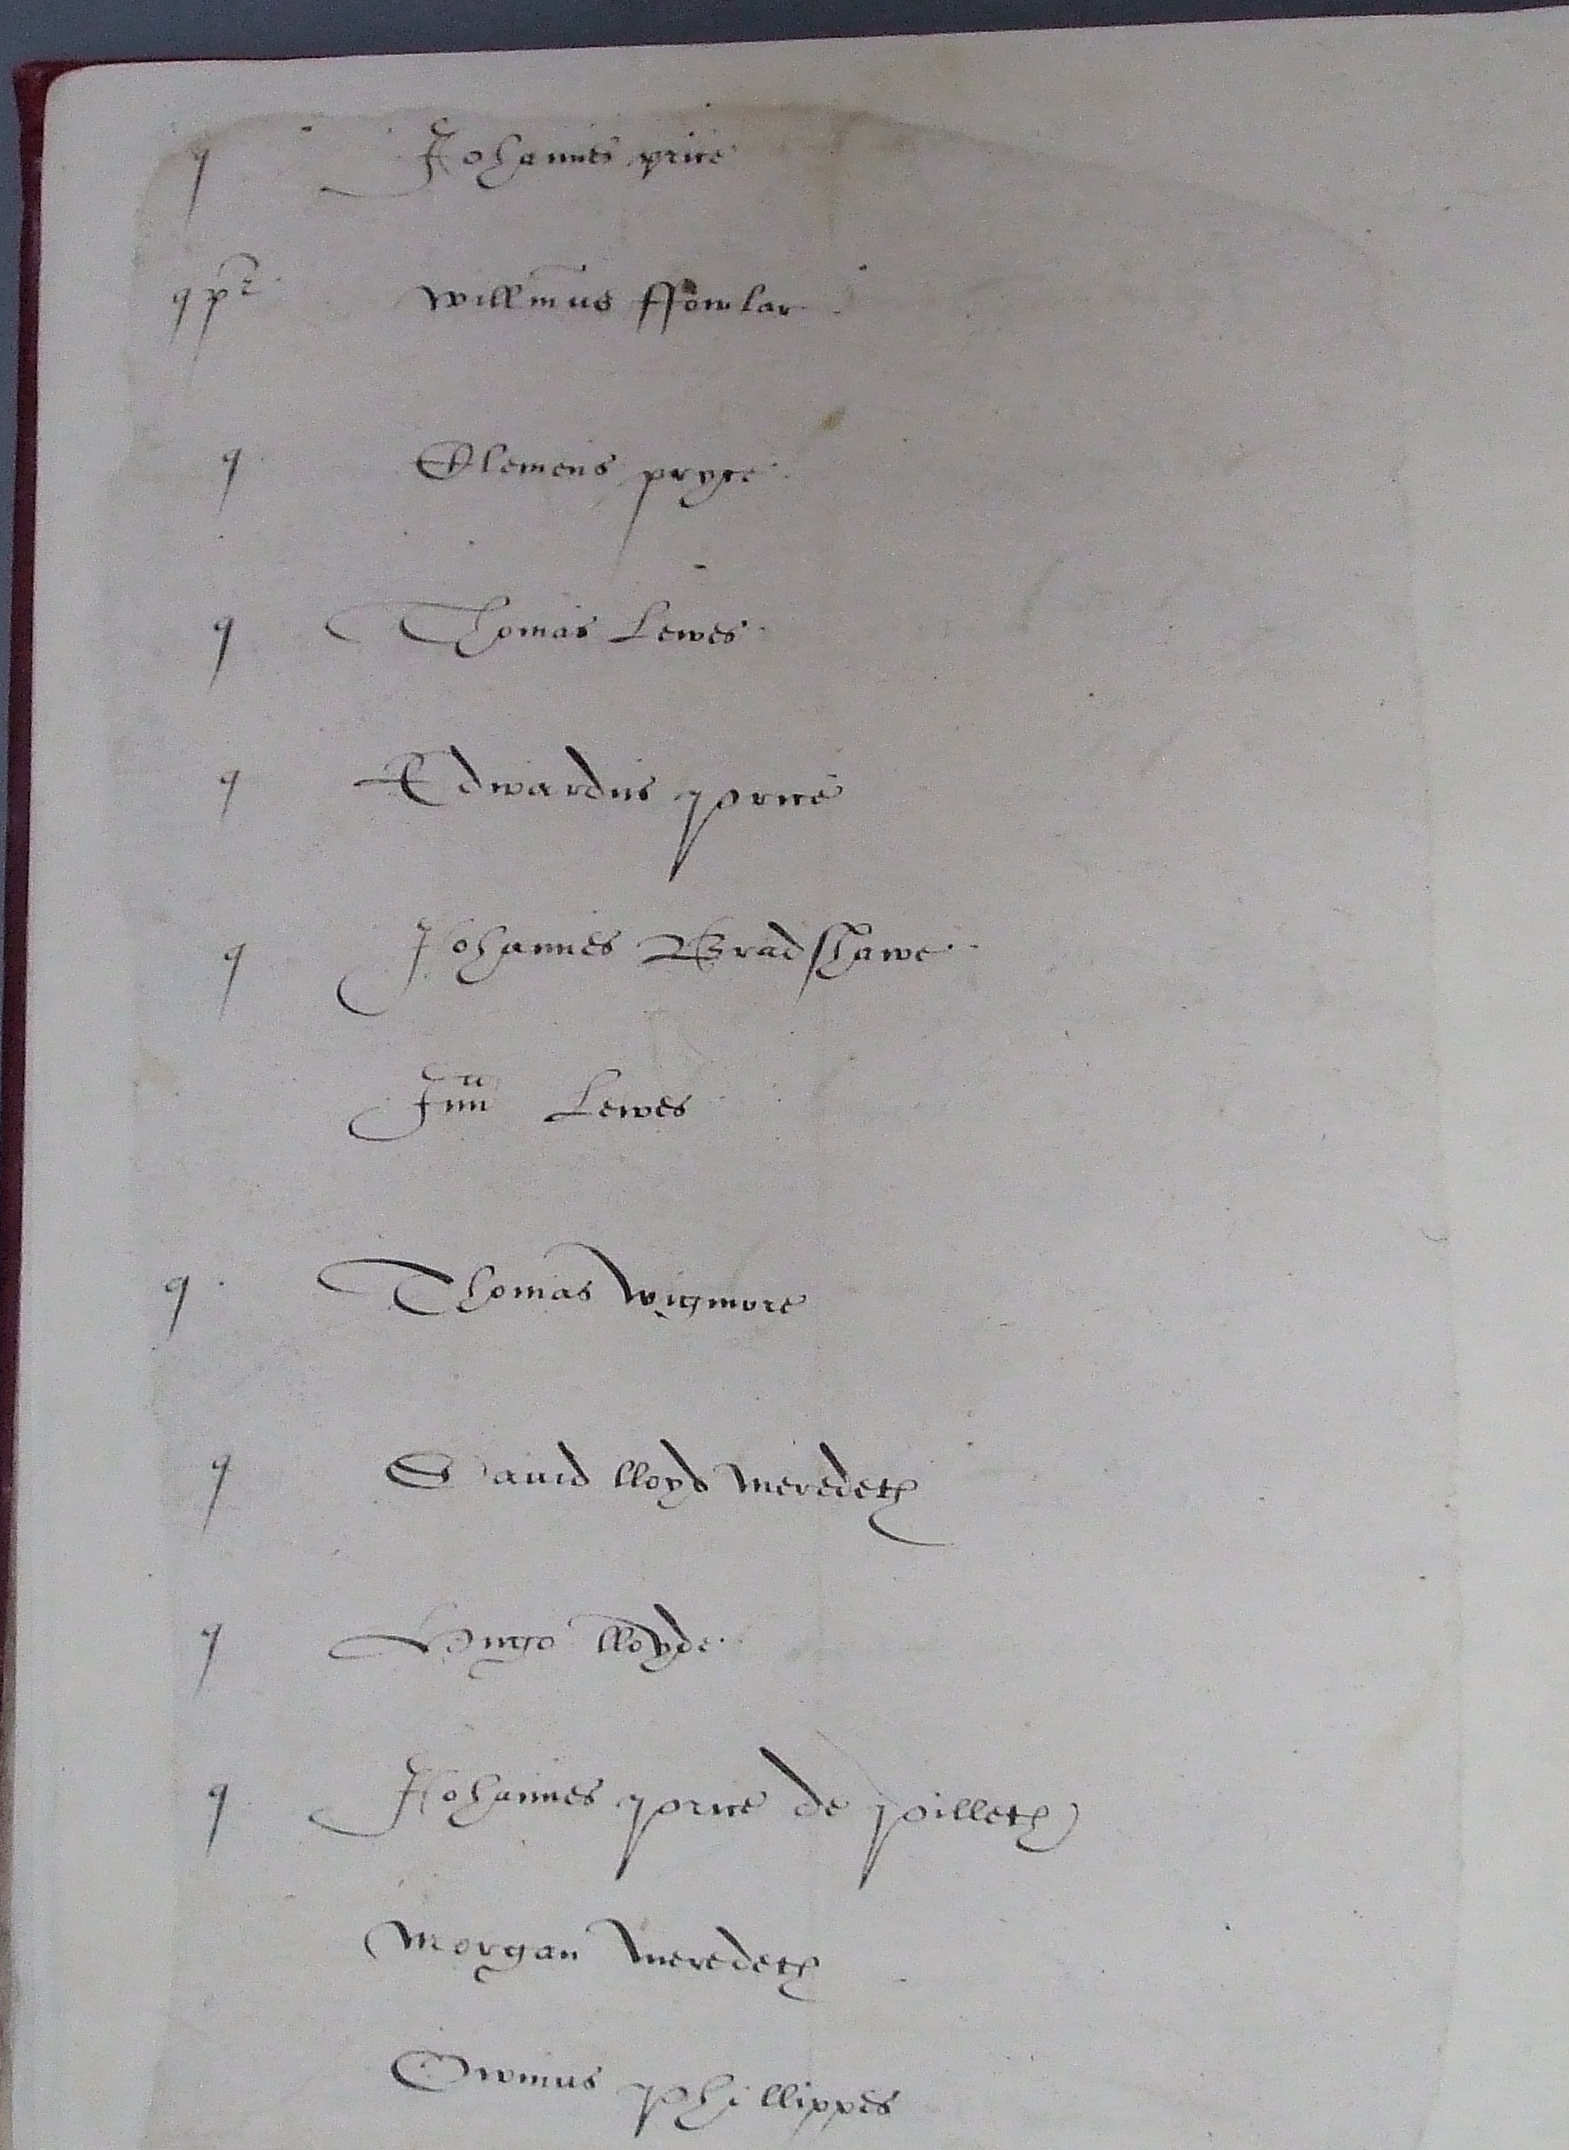 q Johannes price
q pr Willmus ffowlar
q Clemens pryce
q Thomas Lewes
q Edwardus price
q Johannes Bradshawe
Lewes
q Thomas Wigmore
q David lloyd Meredeth
q Hugo lloyde
q Johannes price de pilleth
Morgan Meredeth
Owinus Phillippes